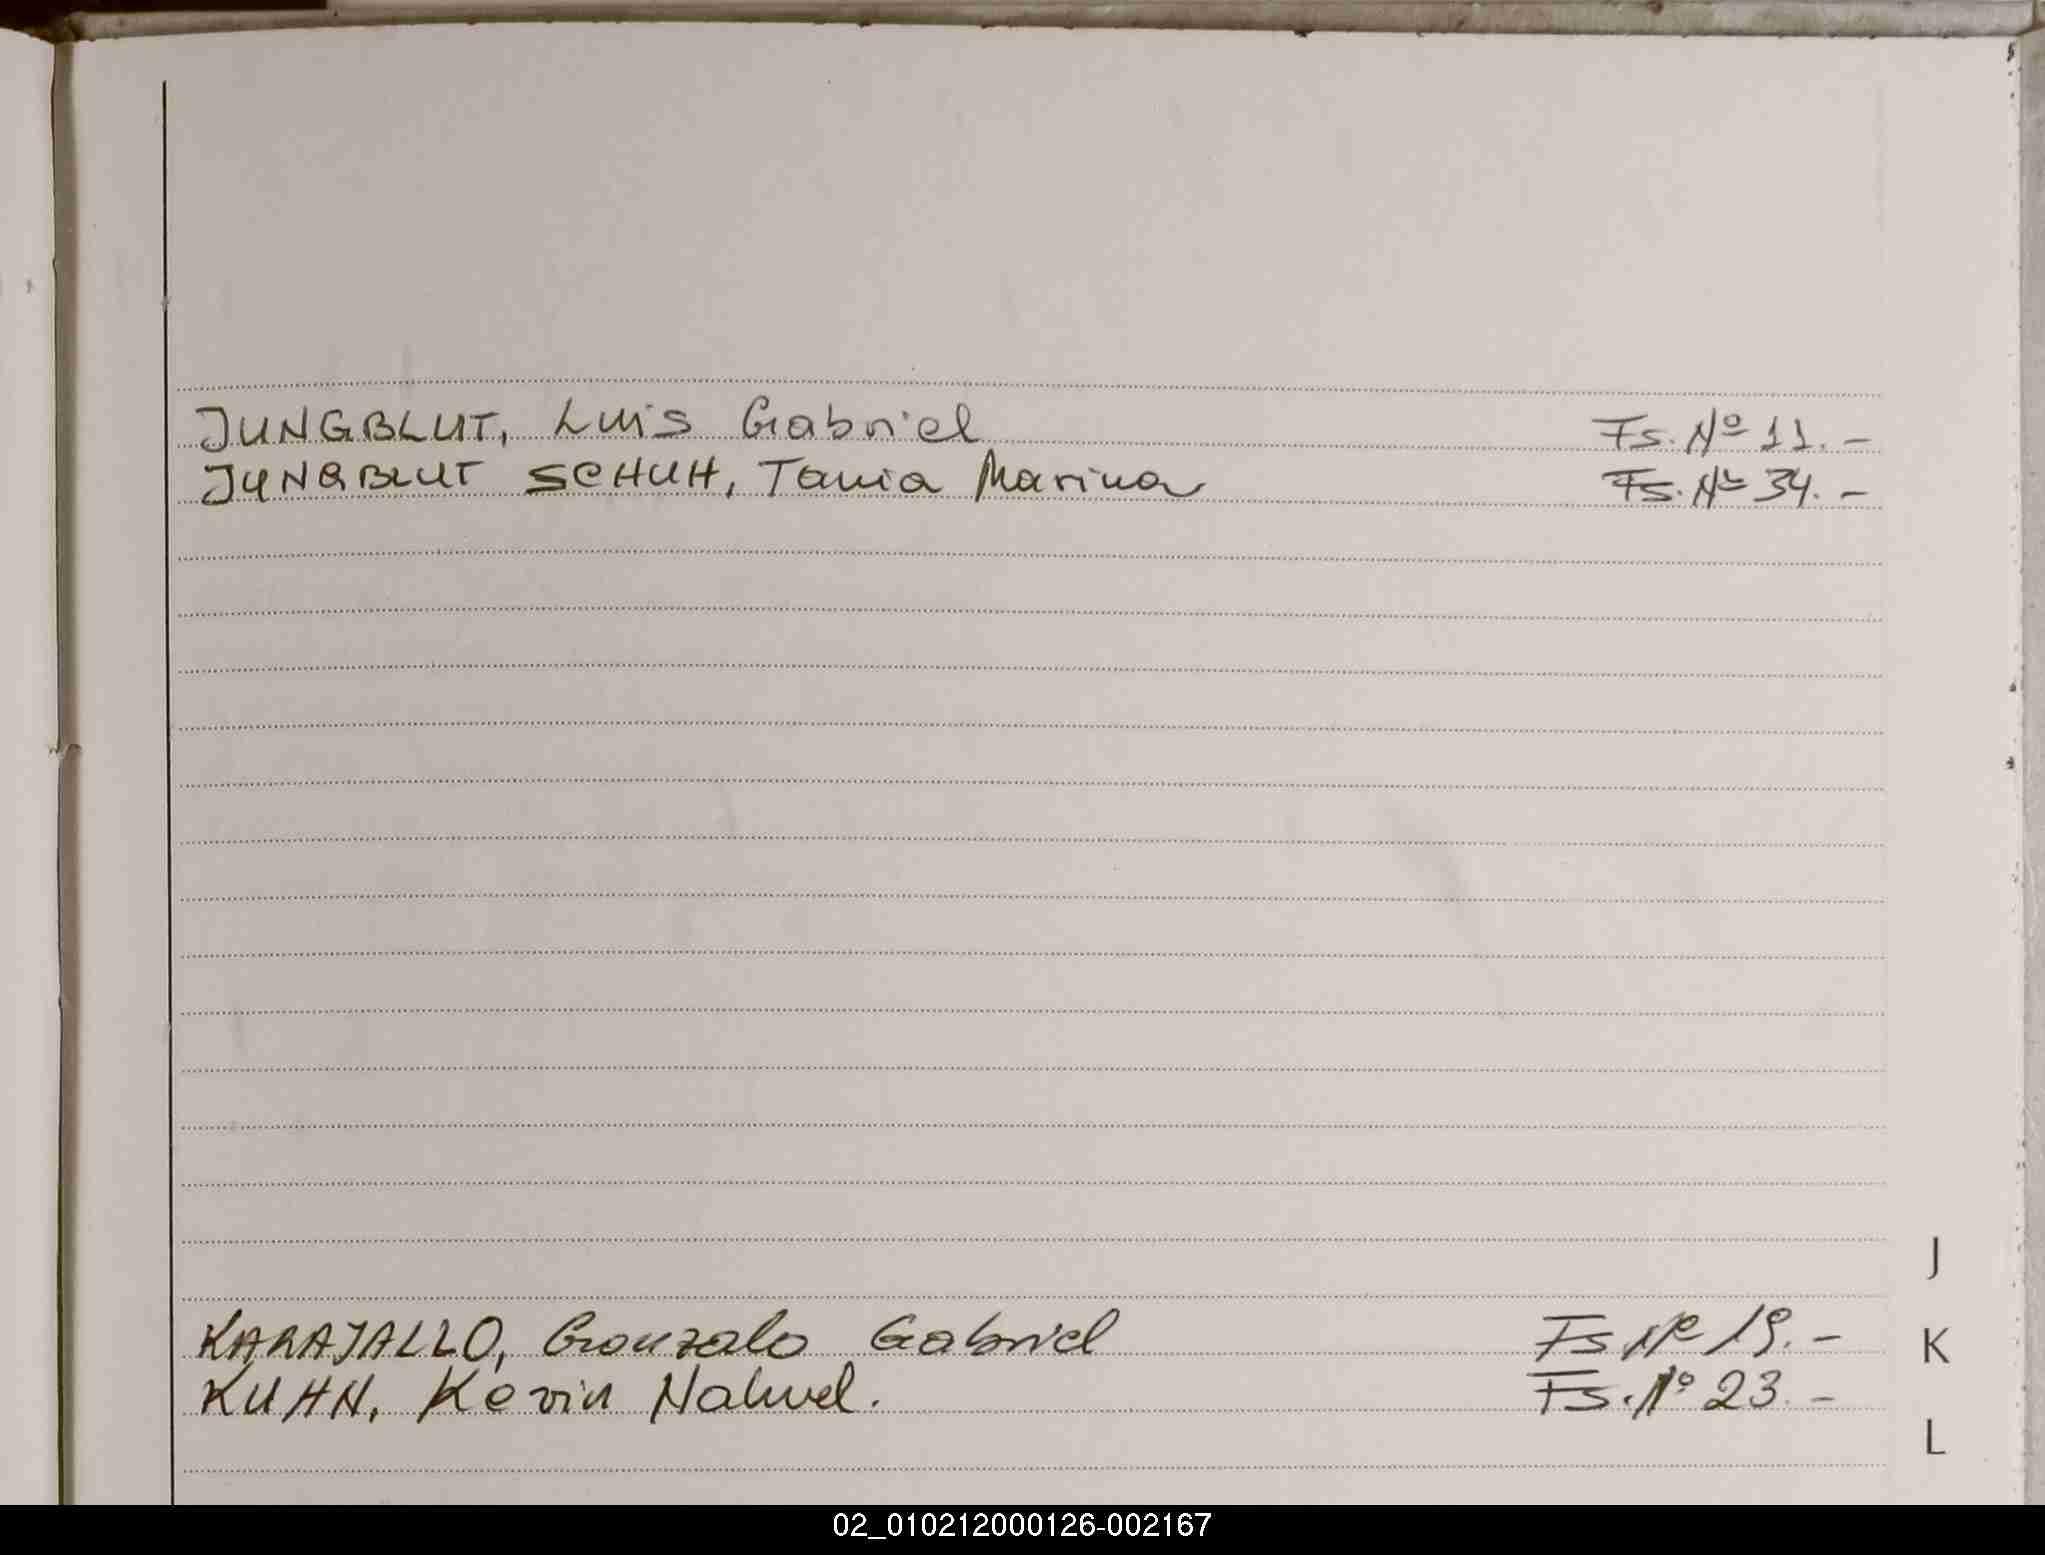 JUNGBLUT, Luis Gabriel Fs. Nº 11.-
JUNGBLUT SCHUH, Tania Marina Fs. Nº 34.-
J
KARAJALLO, Gonzalo Gabriel Fs Nº 19.-
K
KUHN, Kevin Nahuel. Fs. Nº 23.-
L
02_010212000126-002167